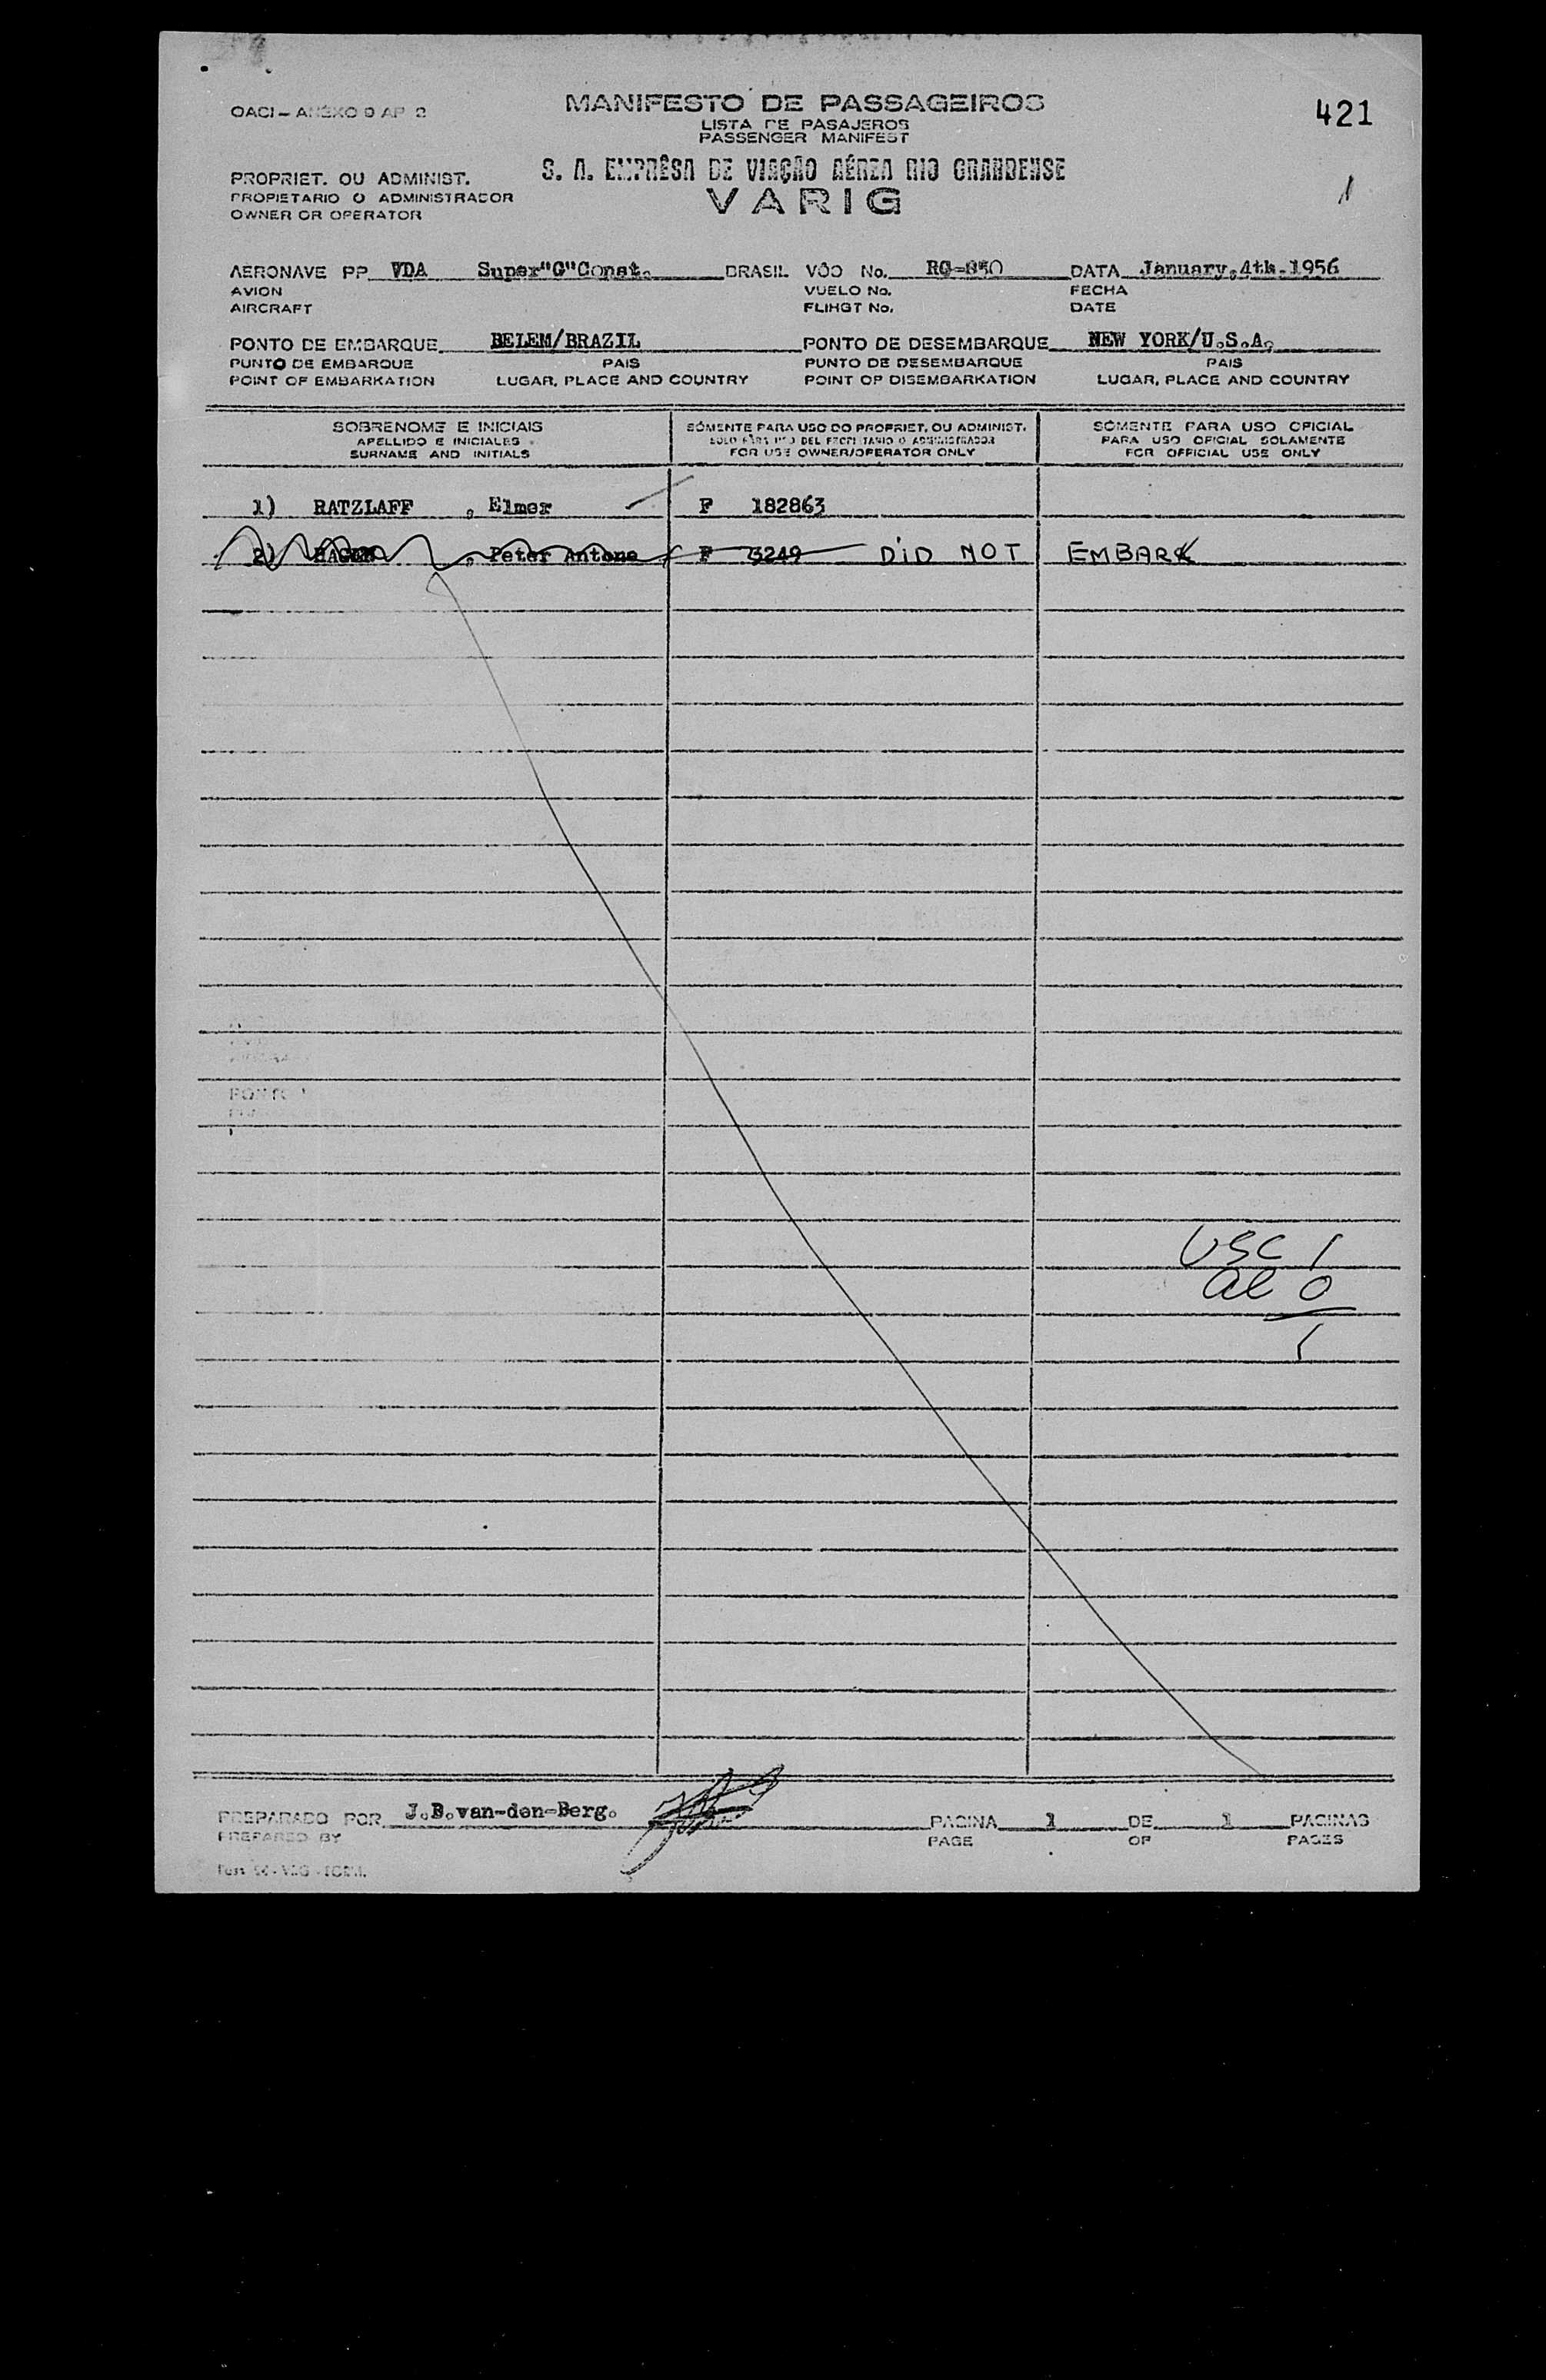 OACI — ANEXO 9 AP 2
MANIFESTO DE PASSAGEIROS
LISTA DE PASAJEROS
PASSENGER MANIFEST
421
S. A. EMPRÊSA DE VIAÇÃO AÉREA RIO GRANDENSE
VARIG
1
PROPRIET. OU ADMINIST.
PROPIETARIO O ADMINISTRADOR
OWNER OR OPERATOR
AERONAVE PP VDA Super"G"Const. BRASIL VÔO No. RG-850 DATA January,4th.1956
AVION VUELO No. FECHA
AIRCRAFT FLIHGT No. DATE
PONTO DE EMBARQUE BELEM/BRAZIL PONTO DE DESEMBARQUE NEW YORK/U.S.A.
PUNTO DE EMBARQUE PAIS PUNTO DE DESEMBARQUE PAIS
POINT OF EMBARKATION LUGAR, PLACE AND COUNTRY POINT OF DISEMBARKATION LUGAR, PLACE AND COUNTRY
SOBRENOME E INICIAIS SÓMENTE PARA USO DO PROPRIET. OU ADMINIST. SÓMENTE PARA USO OFICIAL
APELLIDO E INICIALES SOLO PARA USO DEL PROPIETARIO O ADMINISTRADOR PARA USO OFICIAL SOLAMENTE
SURNAME AND INITIALS FOR USE OWNER/OPERATOR ONLY FOR OFFICIAL USE ONLY
1) RATZLAFF , Elmer F 182863
2) , Peter Antone F 3249 DID NOT EMBARK
USC 1
al 0
1
PREPARADO POR J.B.van-den-Berg. PAGINA 1 DE 1 PAGINAS
PREPARED BY PAGE OF PAGES